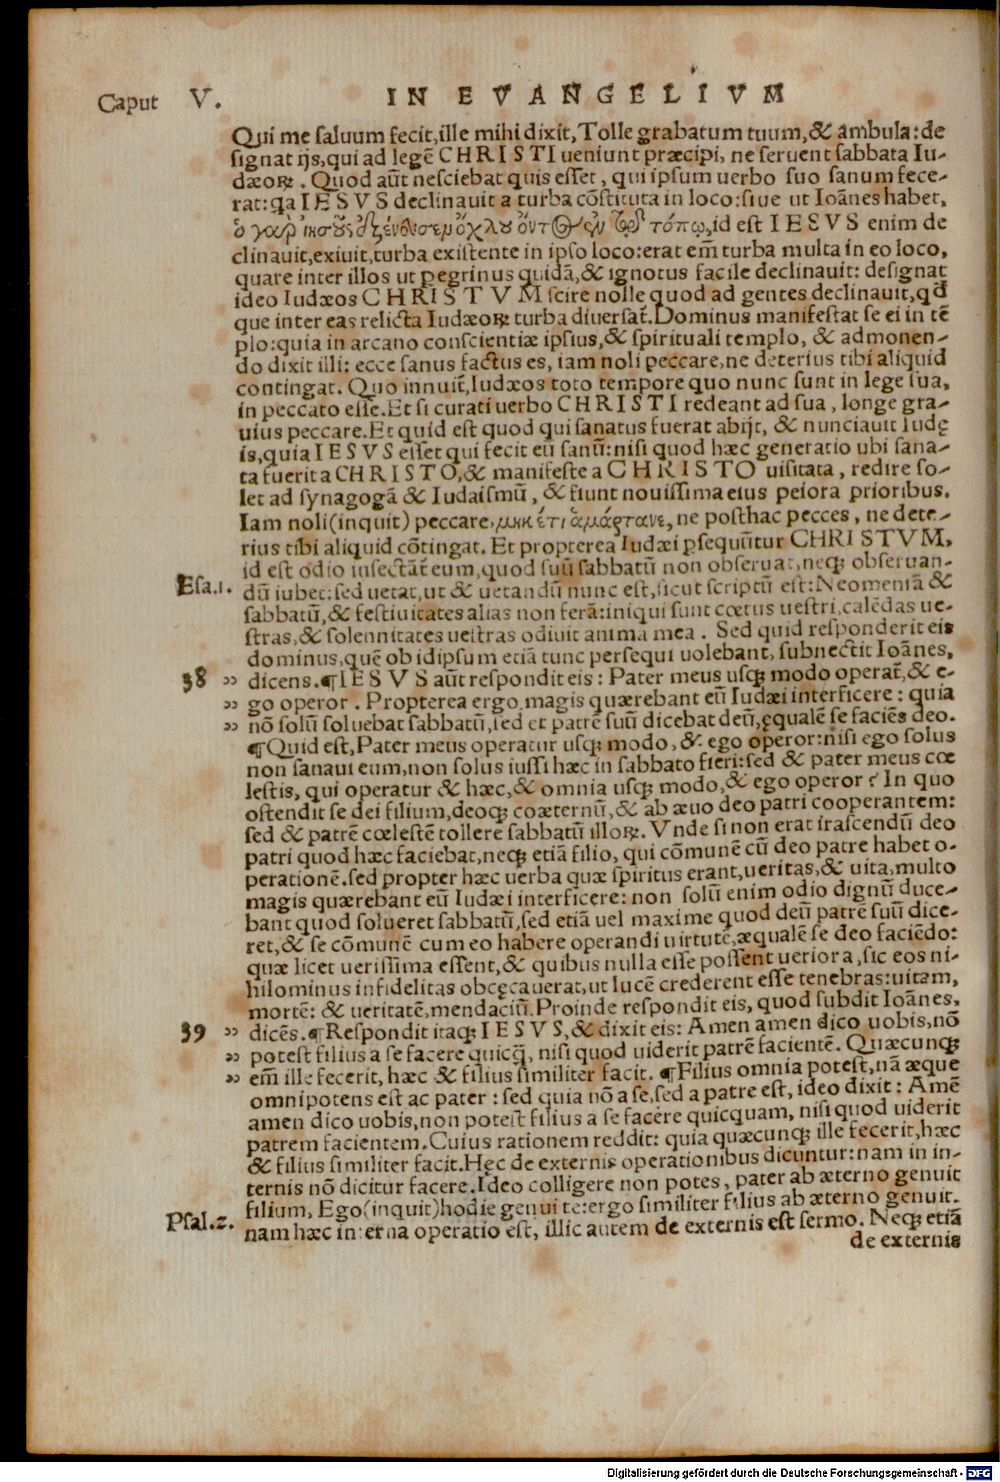 Caput V. IN EVANGELIVM
Qui me saluum fecit, ille mihi dixit, Tolle grabatum tuum, & ambula: de
signat ijs, qui ad legē CHRISTI ueniunt præcipi, ne seruent sabbata Iu-
dæoꝝ. Quod aūt nesciebat quis esset, qui ipsum uerbo suo sanum fece-
rat: qa IESVS declinauit a turba cōstituta in loco: siue ut Ioānes habet,
ὁ γαρ ἰησοῦς ὄχλου ὄντος ἐν τῷ τόπῳ, id est IESVS enim de
clinauit, exiuit, turba existente in ipso loco: erat em̄ turba multa in eo loco,
quare inter illos ut pegrinus quidā, & ignotus facile declinauit: designat
ideo Iudæos CHRISTVM scire nolle quod ad gentes declinauit, qđ
que inter eas relicta Iudæoꝝ turba diuersat̄. Dominus manifestat se ei in tē
plo: quia in arcano conscientiæ ipsius, & spirituali templo, & admonen-
do dixit illi: ecce sanus factus es, iam noli peccare, ne deterius tibi aliquid
contingat. Quo innuit̄, Iudæos toto tempore quo nunc sunt in lege sua,
in peccato esse. Et si curati uerbo CHRISTI redeant ad sua, longe gra-
uius peccare. Et quid est quod qui sanatus fuerat abijt, & nunciauit Iudę
is, quia IESVS esset qui fecit eū sanū: nisi quod hæc generatio ubi sana-
ta fuerit a CHRISTO, & manifeste a CHRISTO uisitata, redire so-
let ad synagogā & Iudaismū, & fiunt nouissima eius peiora prioribus.
Iam noli (inquit) peccare, μηκέτι ἁμάρτανε, ne posthac pecces, ne dete-
rius tibi aliquid cōtingat. Et propterea Iudæi psequūtur CHRISTVM,
id est odio insectāt eum, quod suū sabbatū non obseruat, neqꝫ obseruan-
Esa.1. dū iubet: sed uetat, ut & uetandū nunc est, sicut scriptū est: Neomeniā &
sabbatū, & festiuitates alias non ferā: iniqui sunt cœtus uestri, calēdas ue-
stras, & solennitates uestras odiuit anima mea. Sed quid responderit eis
dominus, quē ob idipsum etiā tunc persequi uolebant, subnectit Ioānes,
38 ,, dicens. ¶ IESVS aūt respondit eis: Pater meus usqꝫ modo operat̄, & e-
,, go operor. Propterea ergo magis quærebant eū Iudæi interficere: quia
,, nō solū soluebat sabbatū, sed et patrē suū dicebat deū, ęqualē se faciēs deo.
¶ Quid est, Pater meus operatur usqꝫ modo, & ego operor: nisi ego solus
non sanaui eum, non solus iussi hæc in sabbato fieri: sed & pater meus cœ
lestis, qui operatur & hæc, & omnia usqꝫ modo, & ego operor? In quo
ostendit se dei filium, deoqꝫ coæternū, & ab æuo deo patri cooperantem:
sed & patrē cœlestē tollere sabbatū illoꝝ. Vnde si non erat irascendū deo
patri quod hæc faciebat, neqꝫ etiā filio, qui cōmunē cū deo patre habet o-
perationē. sed propter hæc uerba quæ spiritus erant, ueritas, & uita, multo
magis quærebant eū Iudæi interficere: non solū enim odio dignū duce-
bant quod solueret sabbatū, sed etiā uel maxime quod deū patrē suū dice-
ret, & se cōmunē cum eo habere operandi uirtutē, æqualē se deo faciēdo:
quæ licet uerissima essent, & quibus nulla esse possent ueriora, sic eos ni-
hilominus infidelitas obcęcauerat, ut lucē crederent esse tenebras: uitam,
mortē: & ueritatē, mendaciū. Proinde respondit eis, quod subdit Ioānes,
39 ,, dicēs. ¶ Respondit itaqꝫ IESVS, & dixit eis: Amen amen dico uobis, nō
,, potest filius a se facere quicq̄, nisi quod uiderit patrē facientē. Quæcunqꝫ
,, em̄ ille fecerit, hæc & filius similiter facit. ¶ Filius omnia potest, nā æque
omnipotens est ac pater: sed quia nō a se, sed a patre est, ideo dixit: Amē
amen dico uobis, non potest filius a se facere quicquam, nisi quod uiderit
patrem facientem. Cuius rationem reddit: quia quæcunqꝫ ille fecerit, hæc
& filius similiter facit. Hęc de externis operationibus dicuntur: nam in in-
ternis nō dicitur facere. Ideo colligere non potes, pater ab æterno genuit
filium, Ego (inquit) hodie genui te: ergo similiter filius ab æterno genuit.
Psal.2. nam hæc interna operatio est, illic autem de externis est sermo. Neqꝫ etiā
de externis
Digitalisierung gefördert durch die Deutsche Forschungsgemeinschaft - DFG